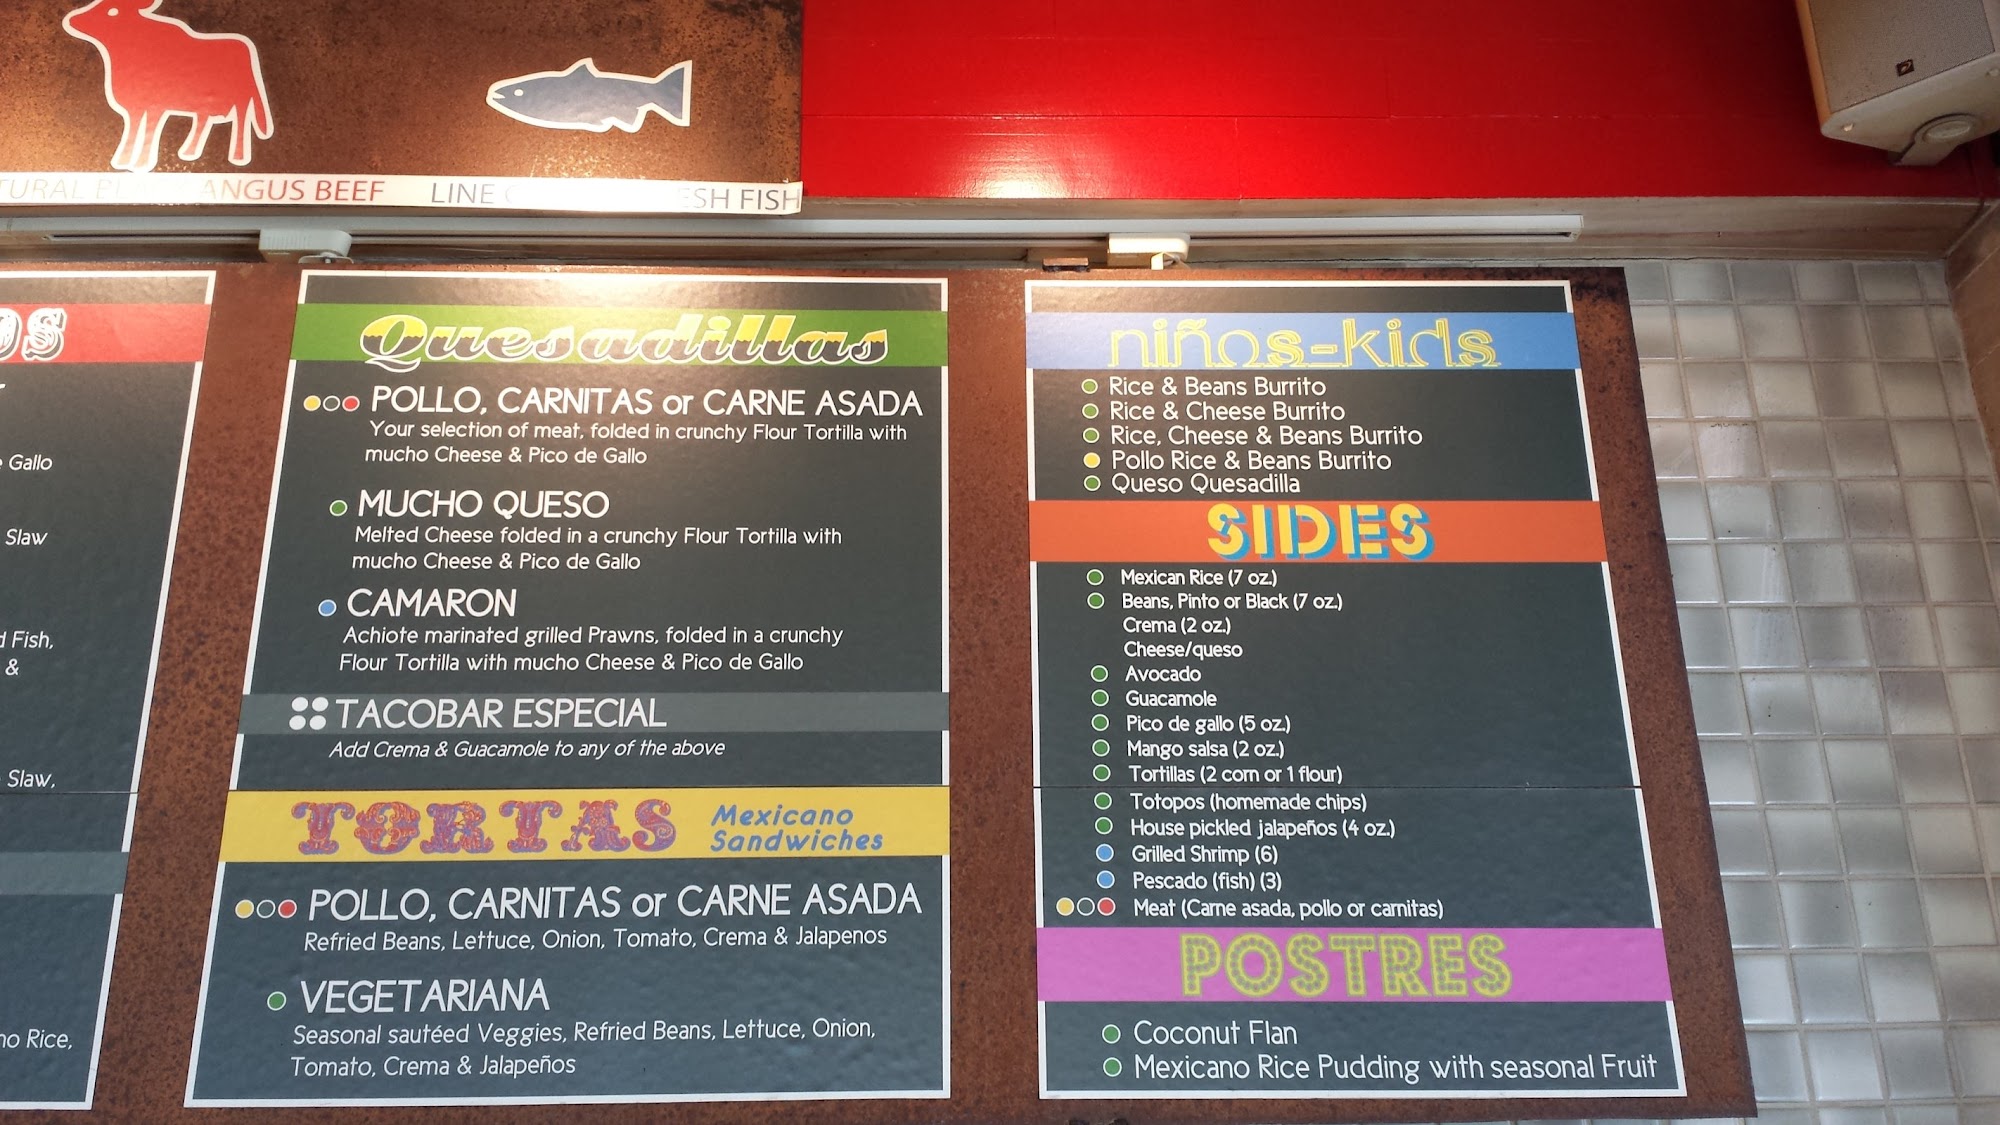 ANGUS BEEF
LINE FISH
Gallo
Slaw
Fish,
&
Slaw,
Rice,
Quesadillas
POLLO, CARNITAS or CARNE ASADA
Your selection of meat, folded in crunchy Flour Tortilla with
mucho Cheese & Pico de Gallo
MUCHO QUESO
Melted Cheese folded in a crunchy Flour Tortilla with
mucho Cheese & Pico de Gallo
CAMARON
Achiote marinated grilled Prawns, folded in a crunchy
Flour Tortilla with mucho Cheese & Pico de Gallo
TACOBAR ESPECIAL
Add Crema & Guacamole to any of the above
TORTAS
Mexicano
Sandwiches
POLLO, CARNITAS or CARNE ASADA
Refried Beans, Lettuce, Onion, Tomato, Crema & Jalapenos
VEGETARIANA
Seasonal sautéed Veggies, Refried Beans, Lettuce, Onion,
Tomato, Crema & Jalapeños
niños-kids
Rice & Beans Burrito
Rice & Cheese Burrito
Rice, Cheese & Beans Burrito
Pollo Rice & Beans Burrito
Queso Quesadilla
SIDES
Mexican Rice (7 oz.)
Beans, Pinto or Black (7 oz.)
Crema (2 oz.)
Cheese/queso
Avocado
Guacamole
Pico de gallo (5 oz.)
Mango salsa (2 oz.)
Tortillas (2 corn or 1 flour)
Totopos (homemade chips)
House pickled jalapeños (4 oz.)
Grilled Shrimp (6)
Pescado (fish) (3)
Meat (Carne asada, pollo or carnitas)
POSTRES
Coconut Flan
Mexicano Rice Pudding with seasonal Fruit